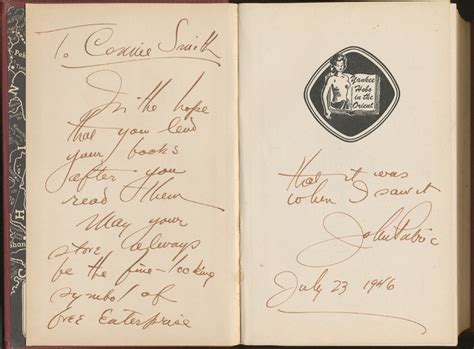 To Connie Smith
In the hope
that you lend
your books
after you
read them
May your
store always
be the fine-looking
symbol of
free Enterprise
Yankee
Hobo
in the
Orient
that it was
when I saw it
John Patric
July 23 1946